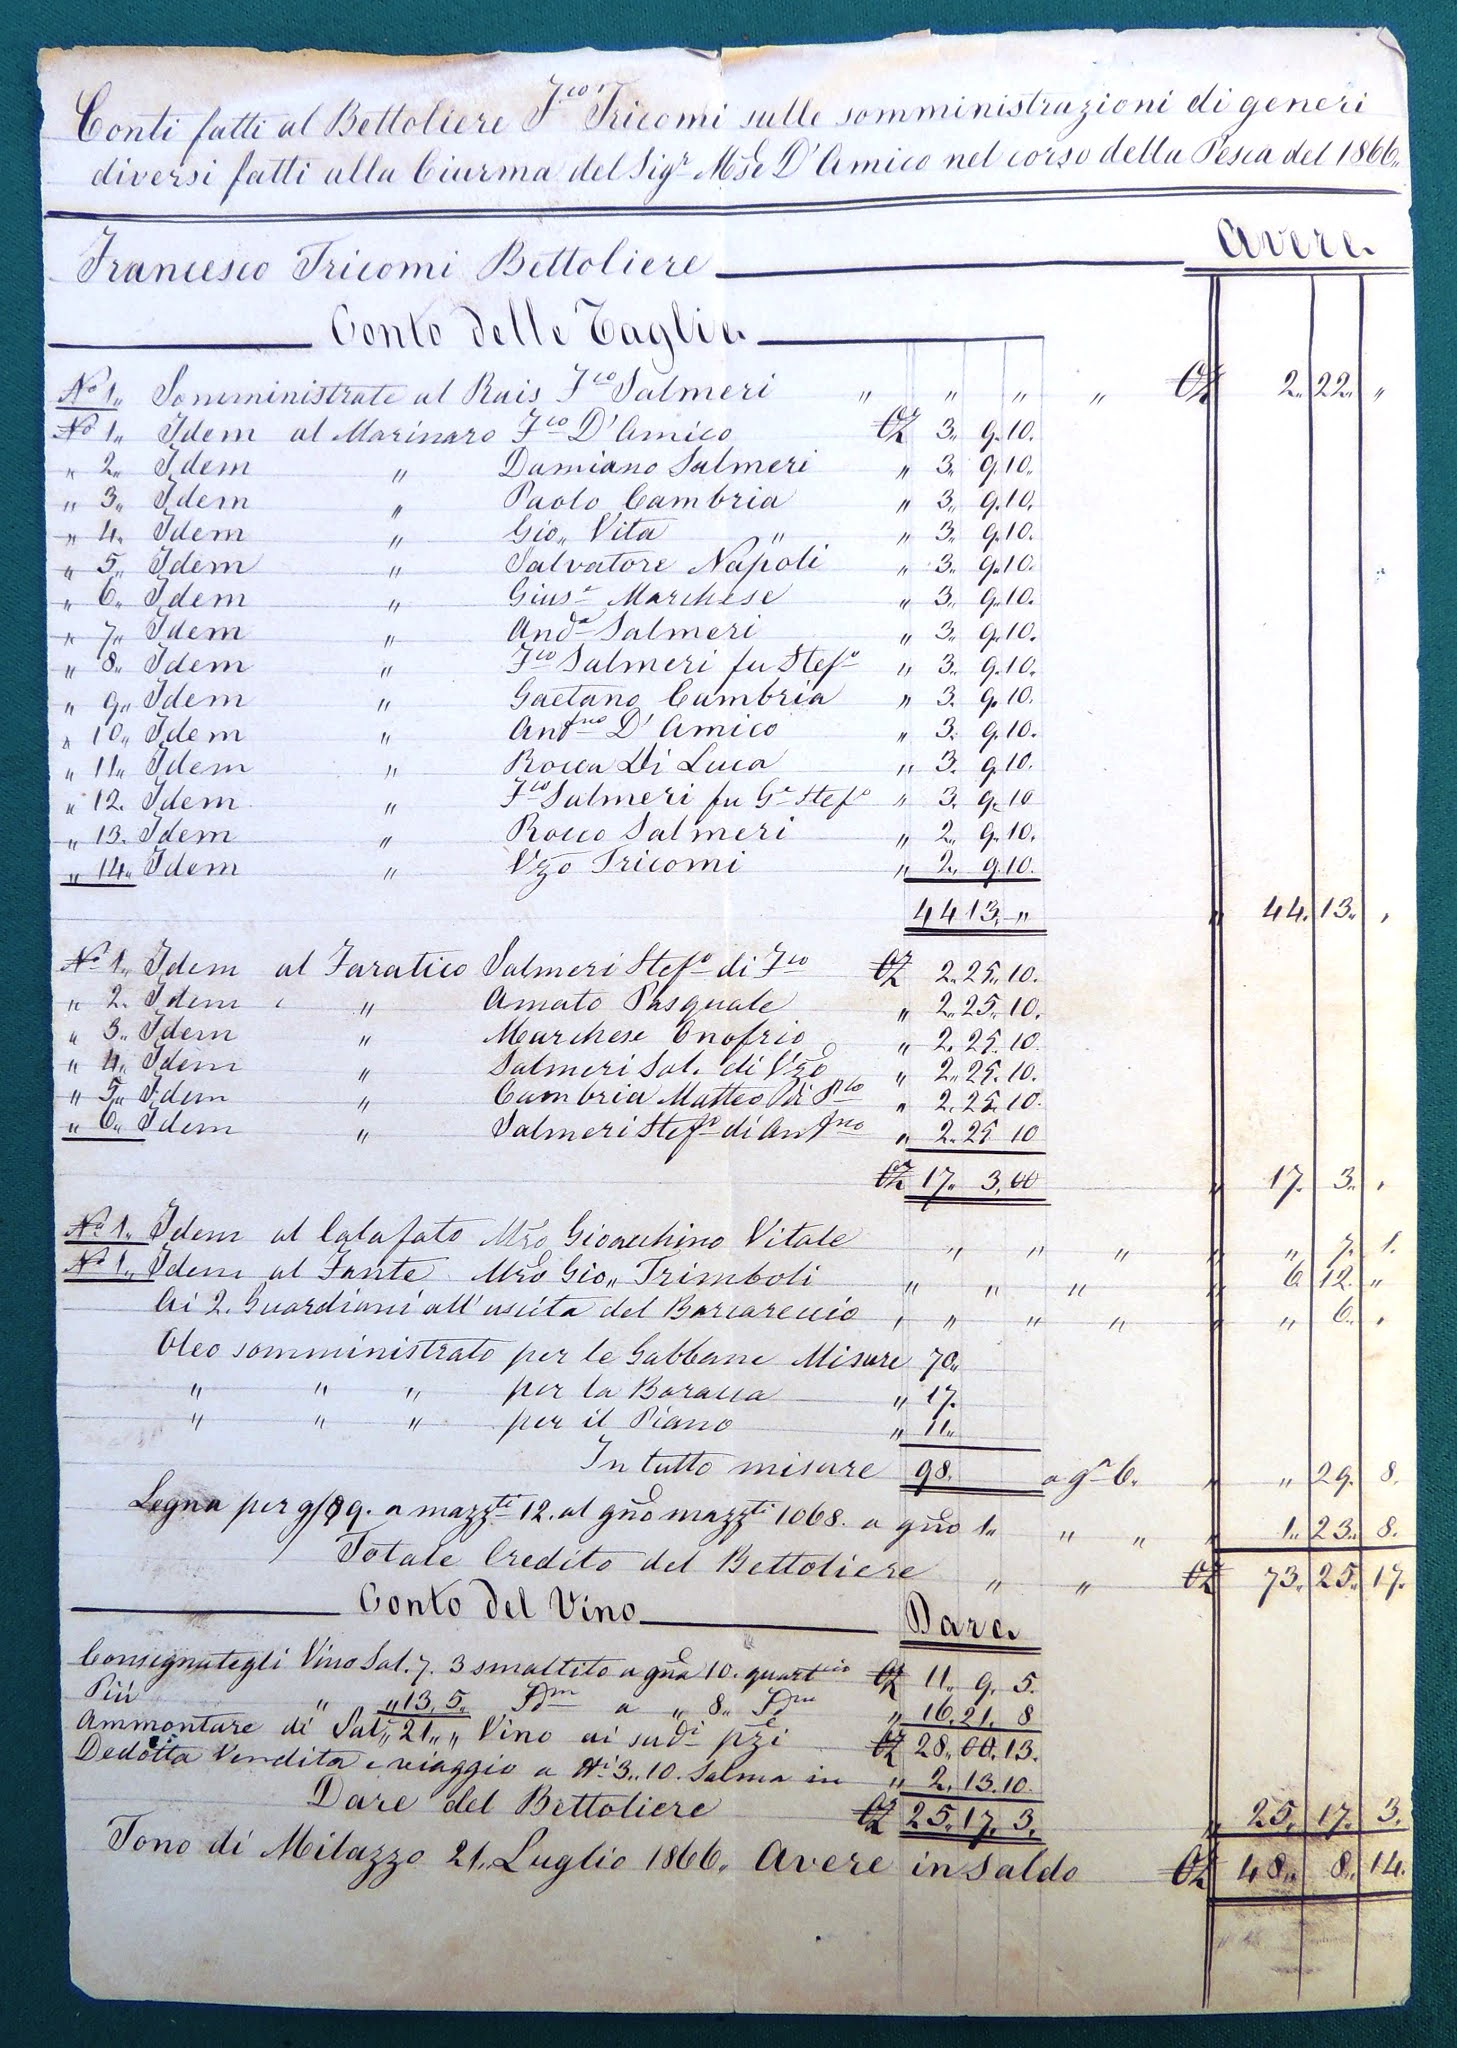 Conti fatti al Bettoliere Fco Tricomi sulle somministrazioni di generi
diversi fatti alla Ciurma del Sigr Mse D'Amico nel corso della Pesca del 1866.
Francesco Tricomi Bettoliere Avere.
Conto delle Taglie.
No 1. Somministrate al Rais Fco Salmeri " " " " Oz 2. 22. "
No 1. Idem al Marinaro Fco D'Amico Oz 3. 9. 10.
" 2. Idem " Damiano Salmeri " 3. 9. 10.
" 3. Idem " Paolo Cambria " 3. 9. 10.
" 4. Idem " Gio. Vita " " 3. 9. 10.
" 5. Idem " Salvatore Napoli " 3. 9. 10.
" 6. Idem " Gius.e Marchese " 3. 9. 10.
" 7. Idem " And.a Salmeri " 3. 9. 10.
" 8. Idem " Fco Salmeri fu Stef.o " 3. 9. 10.
" 9. Idem " Gaetano Cambria " 3. 9. 10.
" 10. Idem " Ant.no D'Amico " 3. 9. 10.
" 11. Idem " Rocca Di Luca " 3. 9. 10.
" 12. Idem " Fco Salmeri fu G.e Stef.o " 3. 9. 10
" 13. Idem " Rocco Salmeri " 2. 9. 10.
" 14. Idem " Vzo Tricomi " 2. 9. 10.
44 13. " " 44. 13. "
No 1. Idem al Faratico Salmeri Stef.o di Fco Oz 2. 25. 10.
" 2. Idem " Amato Pasquale " 2. 25. 10.
" 3. Idem " Marchese Onofrio " 2. 25. 10.
" 4. Idem " Salmeri Sal. di Vzo " 2. 25. 10.
" 5. Idem " Cambria Matteo di Pco " 2. 25. 10.
" 6. Idem " Salmeri Stef.o di Ant.no " 2. 25 10
Oz 17. 3. 00 " 17. 3. "
No 1. Idem al Calafato Mro Gioacchino Vitale " " " " " 7. 1.
No 1. Idem al Fante Mro Gio. Trimboli " " " " 6 12. "
Ai 2. Guardiani all'uscita del Barcareccio " " " " " " 6. "
Oleo somministrato per le Gabbane Misure 70.
" " " per la Baracca " 17.
" " " per il Piano " 11.
In tutto misure 98. a gr 6. " " 29. 8.
Legna per 89. a mazzti 12. al gno mazzti 1068. a gno 1. " " " 1. 23. 8.
Totale Credito del Bettoliere " " Oz 73. 25. 17.
Conto del Vino Dare.
Consegnategli Vino Sal. 7. 3 smaltito a gna 10. quartcio Oz 11. 9. 5.
Più " " 13. 5. Idm a " 8. Idm " 16. 21. 8
Ammontare di Sal. 21. " Vino ai sudi pzi Oz 28. 00. 13.
Dedotta Vendita e viaggio a tti 3. 10. Salma in " 2. 13. 10.
Dare del Bettoliere Oz 25. 17. 3. " 25. 17. 3.
Tono di Milazzo 21. Luglio 1866. Avere in Saldo Oz 48. 8. 14.